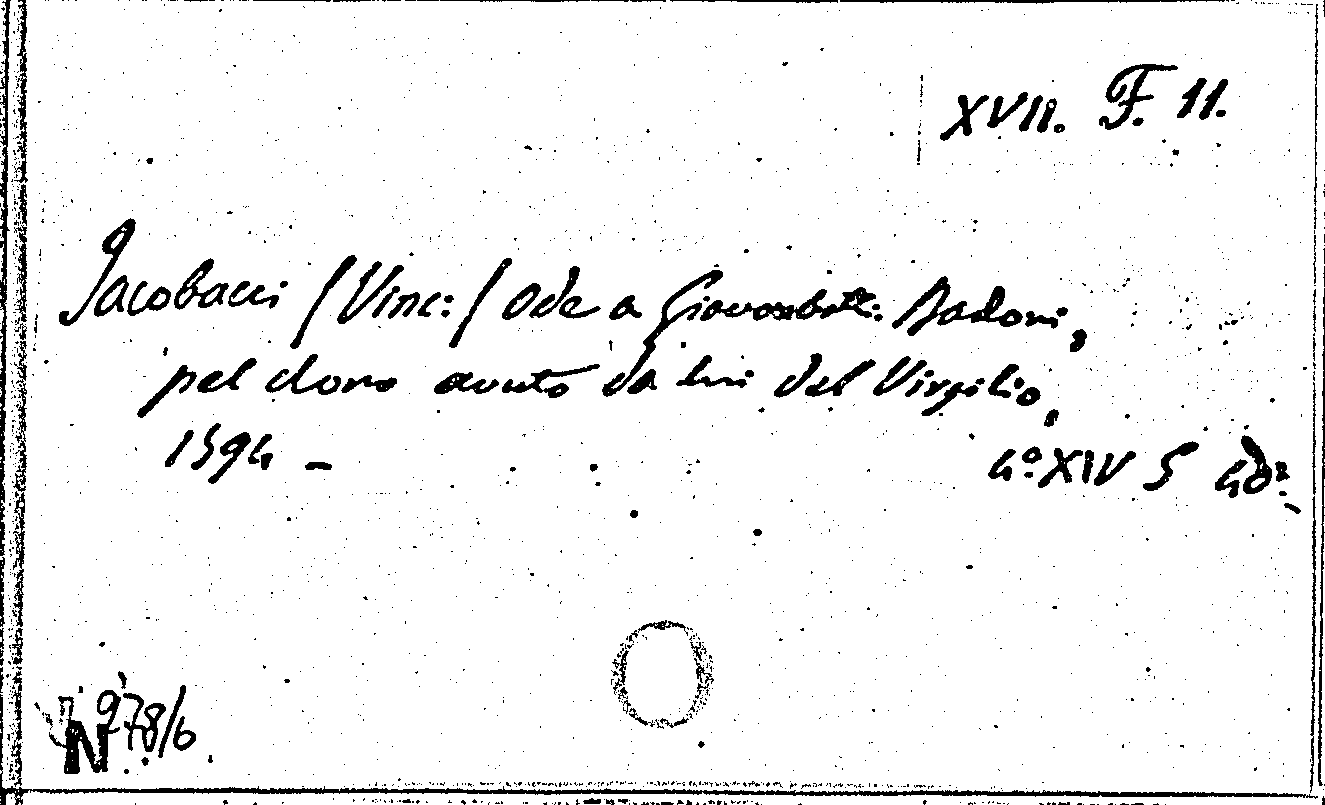 XVII. F. 11.
Jacobacci /Vinc:/ Ode a Giovanbatt: Badoni,
pel dono avuto da lui del Virgilio,
1594 -
4º XIV S
N 278/6